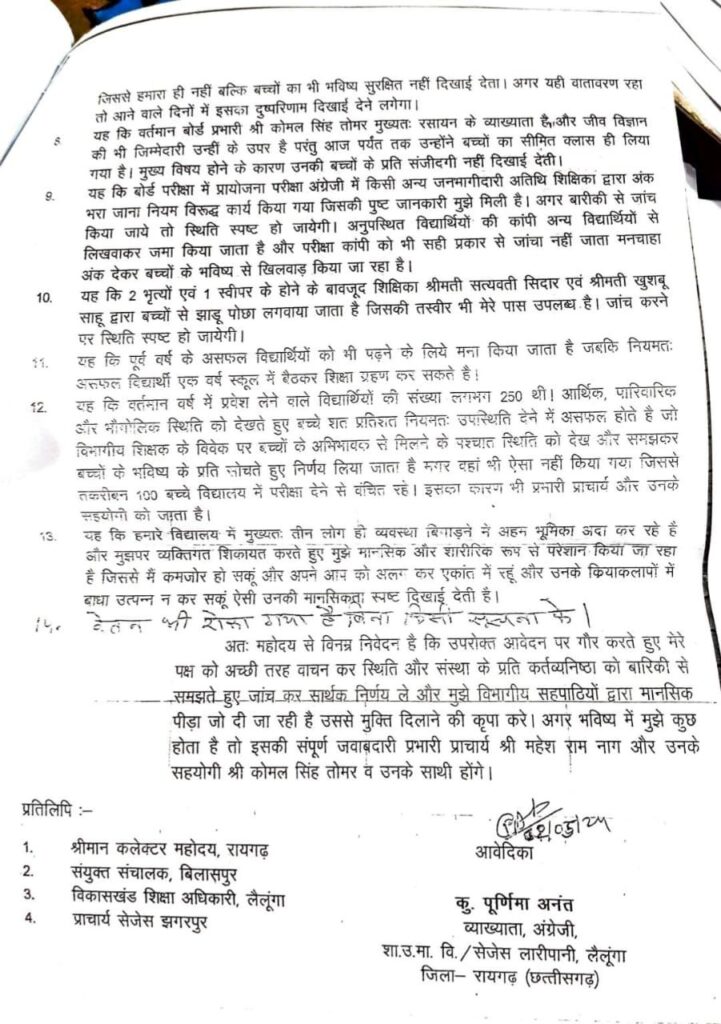 जिससे हमारा ही नहीं बल्कि बच्चों का भी भविष्य सुरक्षित नहीं दिखाई देता। अगर यही वातावरण रहा
तो आने वाले दिनों में इसका दुष्परिणाम दिखाई देने लगेगा।
8. यह कि वर्तमान बोर्ड प्रभारी श्री कोमल सिंह तोमर मुख्यतः रसायन के व्याख्याता है, और जीव विज्ञान
की भी जिम्मेदारी उन्हीं के उपर है परंतु आज पर्यंत तक उन्होंने बच्चों का सीमित क्लास ही लिया
गया है। मुख्य विषय होने के कारण उनकी बच्चों के प्रति संजीदगी नहीं दिखाई देती।
9. यह कि बोर्ड परीक्षा में प्रायोजना परीक्षा अंग्रेजी में किसी अन्य जनमागीदारी अतिथि शिक्षिका द्वारा अंक
भरा जाना नियम विरूद्ध कार्य किया गया जिसकी पुष्ट जानकारी मुझे मिली है। अगर बारीकी से जांच
किया जाये तो स्थिति स्पष्ट हो जायेगी। अनुपस्थित विद्यार्थियों की कांपी अन्य विद्यार्थियों से
लिखवाकर जमा किया जाता है और परीक्षा कांपी को भी सही प्रकार से जांचा नहीं जाता मनचाहा
अंक देकर बच्चों के भविष्य से खिलवाड़ किया जा रहा है।
10. यह कि 2 भृत्यों एवं 1 स्वीपर के होने के बावजूद शिक्षिका श्रीमती सत्यवती सिदार एवं श्रीमती खुशबू
साहू द्वारा बच्चों से झाडू पोछा लगवाया जाता है जिसकी तस्वीर भी मेरे पास उपलब्ध है। जांच करने
पर स्थिति स्पष्ट हो जायेगी।
11. यह कि पूर्व वर्ष के असफल विद्यार्थियों को भी पढ़ने के लिये मना किया जाता है जबकि नियमतः
असफल विद्यार्थी एक वर्ष स्कूल में बैठकर शिक्षा ग्रहण कर सकते है!
12. यह कि वर्तमान वर्ष में प्रवेश लेने वाले विद्यार्थियों की संख्या लगभग 250 थी! आर्थिक, पारिवारिक
और भौगोलिक स्थिति को देखते हुए बच्चे शत प्रतिशत नियमतः उपस्थिति देने में असफल होते है जो
विभागीय शिक्षक के विवेक पर बच्चों के अभिभावक से मिलने के पश्चात स्थिति को देख और समझकर
बच्चों के भविष्य के प्रति सोचते हुए निर्णय लिया जाता है मगर वहां भी ऐसा नहीं किया गया जिससे
तकरीबन 100 बच्चे विद्यालय में परीक्षा देने से वंचित रहे। इसका कारण भी प्रभारी प्राचार्य और उनके
सहयोगी को जाता है।
13. यह कि हमारे विद्यालय में मुख्यतः तीन लोग ही व्यवस्था बिगाड़ने में अहम भूमिका अदा कर रहे है
और मुझपर व्यक्तिगत शिकायत करते हुए मुझे मानसिक और शारीरिक रूप से परेशान किया जा रहा
है जिससे मैं कमजोर हो सकूं और अपने आप को अलग कर एकांत में रहूं और उनके कियाकलापों में
बाधा उत्पन्न न कर सकूं ऐसी उनकी मानसिकता स्पष्ट दिखाई देती है।
14. वेतन भी रोका गया है बिना किसी सूचना के।
अतः महोदय से विनम्र निवेदन है कि उपरोक्त आवेदन पर गौर करते हुए मेरे
पक्ष को अच्छी तरह वाचन कर स्थिति और संस्था के प्रति कर्तव्यनिष्ठा को बारिकी से
समझते हुए जांच कर सार्थक निर्णय ले और मुझे विभागीय सहपाठियों द्वारा मानसिक
पीड़ा जो दी जा रही है उससे मुक्ति दिलाने की कृपा करे। अगर भविष्य में मुझे कुछ
होता है तो इसकी संपूर्ण जवाबदारी प्रभारी प्राचार्य श्री महेश राम नाग और उनके
सहयोगी श्री कोमल सिंह तोमर व उनके साथी होंगे।
प्रतिलिपि :–
1. श्रीमान कलेक्टर महोदय, रायगढ़
2. संयुक्त संचालक, बिलासपुर
3. विकासखंड शिक्षा अधिकारी, लैलूंगा
4. प्राचार्य सेजेस झगरपुर
आवेदिका
कु. पूर्णिमा अनंत
व्याख्याता, अंग्रेजी,
शा.उ.मा. वि./सेजेस लारीपानी, लैलूंगा
जिला– रायगढ़ (छत्तीसगढ़)